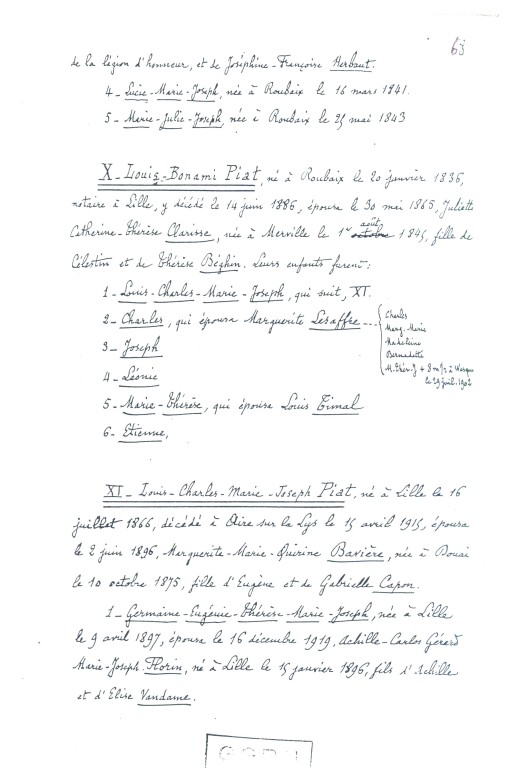 63
de la légion d'honneur, et de Joséphine-Françoise Herbaut.
4_ Lucie-Marie-Joseph, née à Roubaix le 16 mars 1841.
5_ Marie-Julie-Joseph, née à Roubaix le 25 mai 1843
X_ Louis-Bonami Piat, né à Roubaix le 20 janvier 1835,
notaire à Lille, y décédé le 14 juin 1886, épousa le 30 mai 1865, Juliette
Catherine-Thérèse Clarisse, née à Merville le 1er août octobre 1845, fille de
Célestin et de Thérèse Béghin. Leurs enfants furent:
1_ Louis-Charles-Marie-Joseph, qui suit, XI.
2_ Charles, qui épousa Marguerite Lesaffre
Charles
Marg. Marie
Madeleine
Bernadette
3_ Joseph
4_ Léonie
le 29 juil. 1902
5_ Marie-Thérèse, qui épousa Louis Timal
6_ Etienne,
XI_ Louis-Charles-Marie-Joseph Piat, né à Lille le 16
juillet 1866, décédé à Aire sur la Lys le 15 avril 1915, épousa
le 2 juin 1896, Marguerite-Marie-Quirine Bavière, née à Douai
le 10 octobre 1875, fille d'Eugène et de Gabrielle Capon.
1_ Germaine-Eugénie-Thérèse-Marie-Joseph, née à Lille
le 9 avril 1897, épousa le 16 décembre 1919, Achille-Carlos Gérard
Marie-Joseph Florin, né à Lille le 15 janvier 1896, fils d'Achille
et d'Elise Vandame.